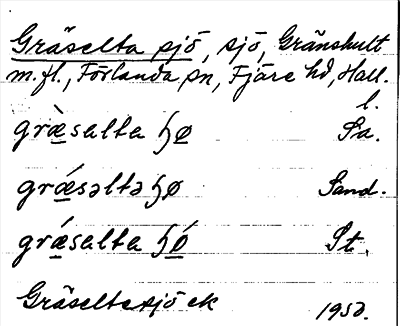 Gräselta sjö, sjö, Gränshult
m.fl., Förlanda sn, Fjäre hd, Hall.
l.
græ̀salta ɧø Sa.
grǽsəltə ɧø Sand.
grǽsalta ɧǿ St.
Gräseltesjö ek 1950.